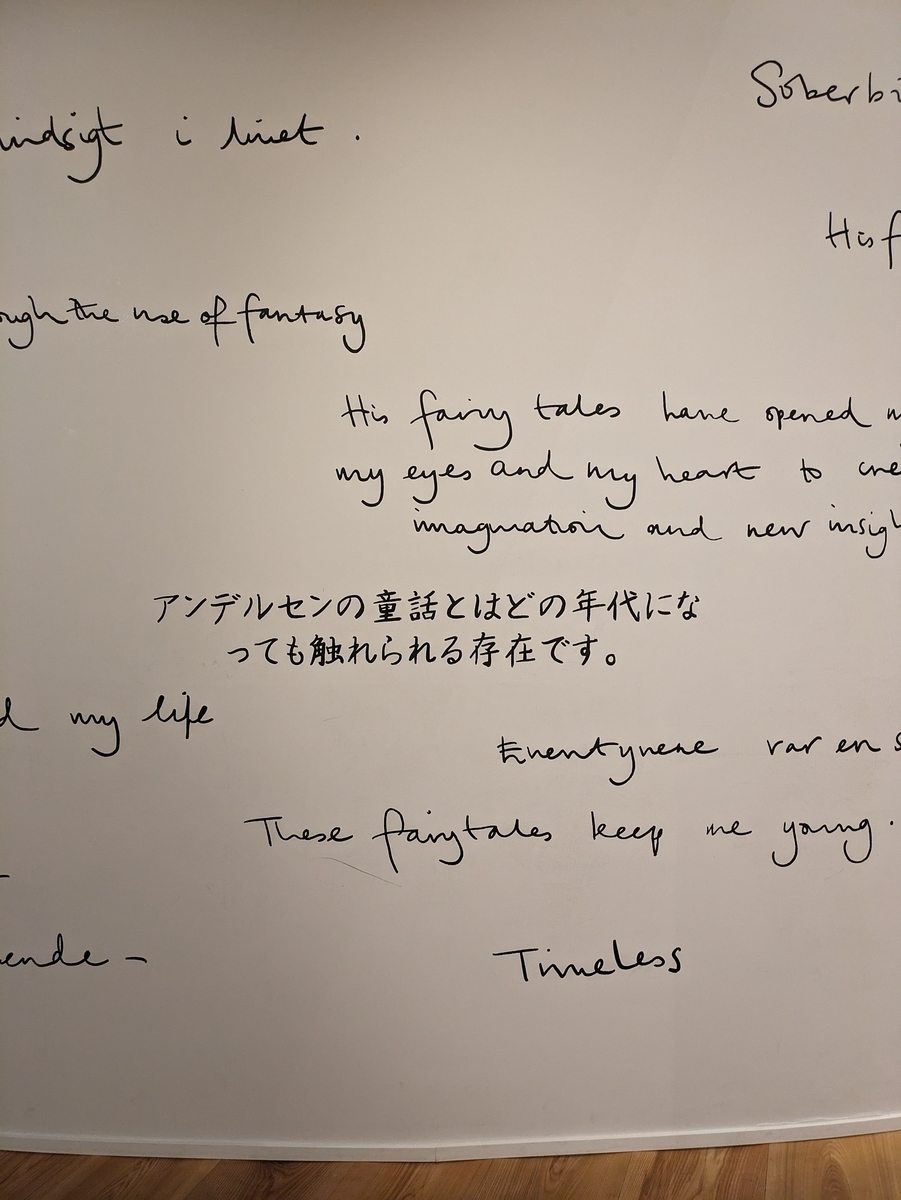 Soberbi
indsigt i livet.
His f
ough the use of fantasy
His fairy tales have opened m
my eyes and my heart to cre
imagination and new insigh
アンデルセンの童話とはどの年代にな
っても触れられる存在です。
d my life
Eventyrene var en s
These fairytales keep me young.
ende –
Timeless